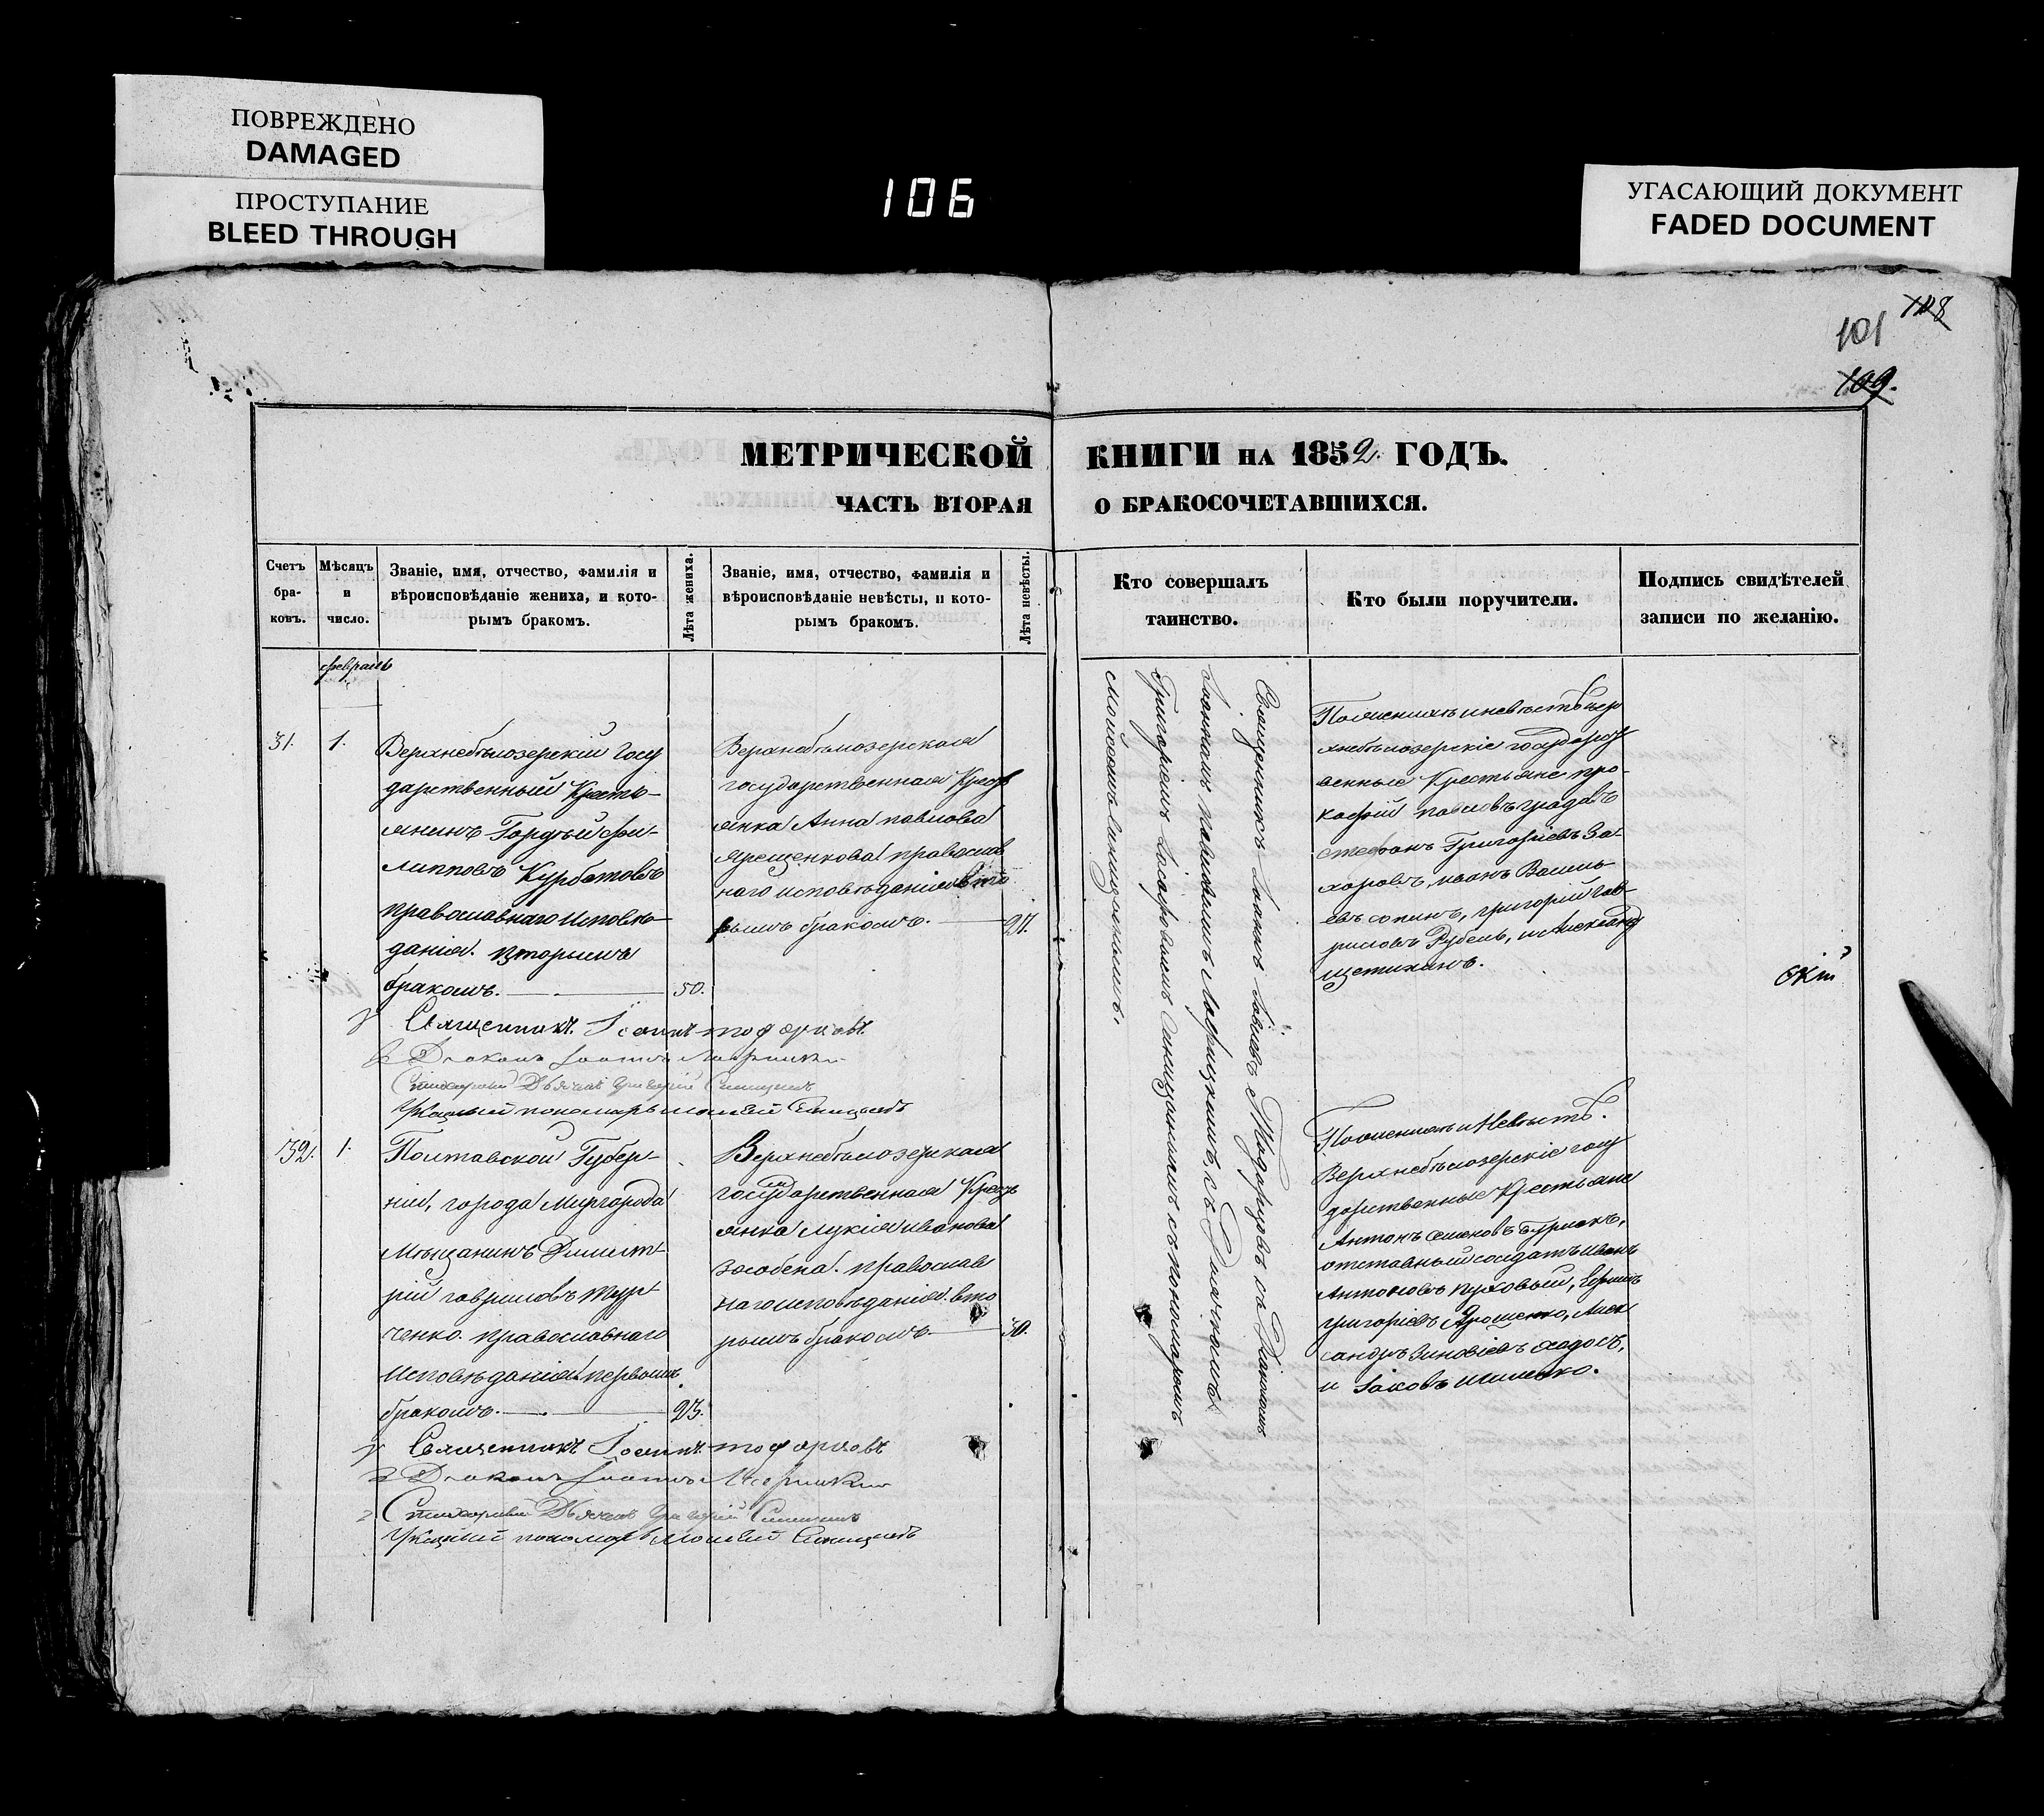 ПОВРЕЖДЕНО
DAMAGED
ПРОСТУПАНИЕ
BLEED THROUGH
106
УГАСАЮЩИЙ ДОКУМЕНТ
FADED DOCUMENT
118
101
109.
МЕТРИЧЕСКОЙ КНИГИ НА 1852 ГОДЪ.
ЧАСТЬ ВТОРАЯ О БРАКОСОЧЕТАВШИХСЯ.
Счетъ бра-ковъ.
Мѣсяцъ и число.
Званіе, имя, отчество, фамилія и
вѣроисповѣданіе жениха, и кото-
рымъ бракомъ.
Лѣта жениха.
Званіе, имя, отчество, фамилія и
вѣроисповѣданіе невѣсты, и кото-
рымъ бракомъ.
Лѣта невѣсты.
Кто совершалъ
таинство.
Кто были поручители.
Подпись свидѣтелей
записи по желанію.
февраль
31. 1.
Верхнебѣлозерскій Госу
дарственный Кресть-
янинъ Гордѣй Фи-
липповъ Курбатовъ
православнаго исповѣ-
данія. вторымъ
бракомъ. 50.
Верхнебѣлозерская
государственная Крест
янка Анна павлова
Ярещенкова православ
наго исповѣданія вто
рымъ бракомъ. 27.
Священникъ Іоаннъ съ Діакономъ
Іоанномъ съ Дьячкомъ
Григоріемъ Синицынымъ съ пономаремъ
Моисеемъ Синицынымъ.
По женихѣ и невѣстѣ вер
хнебѣлозерскіе государст
венные Крестьяне про-
кофій павловъ
стефанъ Григоріевъ За-
харовъ, иванъ Василь
евъ сопинъ, григорій гав-
риловъ Рубель, и Александ
щетихинъ.
Священникъ Іоаннъ
Діаконъ Іоаннъ
Стихарный Дьячекъ Григорій Синицынъ
Указный пономарь Моисей Синицынъ
32. 1.
Полтавской Губер-
ніи, города Миргорода
Мѣщанинъ Димит-
рій гавриловъ Тур-
ченко. православнаго
исповѣданія первымъ
бракомъ. 23.
Верхнебѣлозерская
государственная Крест
янка Лукія иванова
Засобена. православ
наго исповѣданія. вто
рымъ бракомъ. 30.
По женихѣ и Невѣстѣ.
Верхнебѣлозерскіе госу
дарственные Крестьяне
Антонъ семеновъ
отставный солдатъ иванъ
Антоновъ пуховый,
григоріевъ Ярошенко, Алек
сандръ Зиновіевъ
и Іаковъ
Священникъ Іоаннъ
Діаконъ Іоаннъ
Стихарный Дьячекъ Григорій Синицынъ
Указный пономарь Моисей Синицынъ